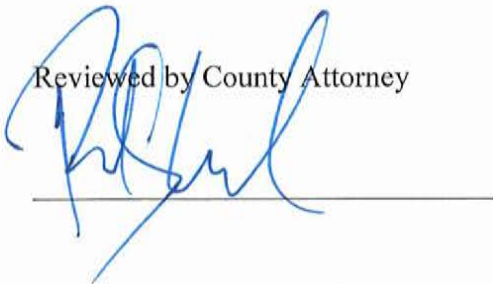 Reviewed by County Attorney